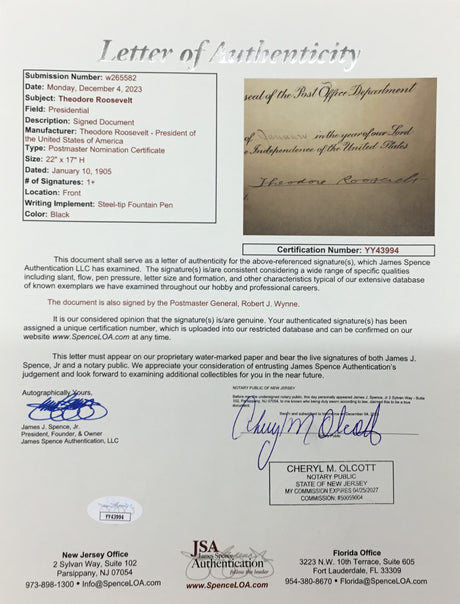 Letter of Authenticity
Submission Number: w265582
Date: Monday, December 4, 2023
Subject: Theodore Roosevelt
Field: Presidential
Description: Signed Document
Manufacturer: Theodore Roosevelt - President of
the United States of America
Type: Postmaster Nomination Certificate
Size: 22" x 17" H
Date: January 10, 1905
# of Signatures: 1+
Location: Front
Writing Implement: Steel-tip Fountain Pen
Color: Black
seal of the Post Office Department
of January in the year of our Lord
e Independence of the United States
Theodore Roosevelt
Certification Number: YY43994
This document shall serve as a letter of authenticity for the above-referenced signature(s), which James Spence
Authentication LLC has examined. The signature(s) is/are consistent considering a wide range of specific qualities
including slant, flow, pen pressure, letter size and formation, and other characteristics typical of our extensive database
of known exemplars we have examined throughout our hobby and professional careers.
The document is also signed by the Postmaster General, Robert J. Wynne.
It is our considered opinion that the signature(s) is/are genuine. Your authenticated signature(s) has been
assigned a unique certification number, which is uploaded into our restricted database and can be confirmed on our
website www.SpenceLOA.com at any time.
This letter must appear on our proprietary water-marked paper and bear the live signatures of both James J.
Spence, Jr and a notary public. We appreciate your consideration of entrusting James Spence Authentication's
judgement and look forward to examining additional collectibles for you in the near future.
Autographically Yours,
James J. Spence, Jr.
President, Founder, & Owner
James Spence Authentication, LLC
NOTARY PUBLIC OF NEW JERSEY
Before me, the undersigned notary public, this day personally appeared James J. Spence, Jr 2 Sylvan Way - Suite
102, Parsippany, NJ 07054, to me known who being duly sworn according to law, claimed this to be a true
document.
Cheryl M Olcott
CHERYL M. OLCOTT
NOTARY PUBLIC
STATE OF NEW JERSEY
MY COMMISSION EXPIRES 04/25/2027
COMMISSION: #50059004
YY43994
New Jersey Office
2 Sylvan Way, Suite 102
Parsippany, NJ 07054
973-898-1300 • Info@SpenceLOA.com
JSA
Authentication
follow the leader
www.SpenceLOA.com
Florida Office
3223 N.W. 10th Terrace, Suite 605
Fort Lauderdale, FL 33309
954-380-8670 • Florida@SpenceLOA.com